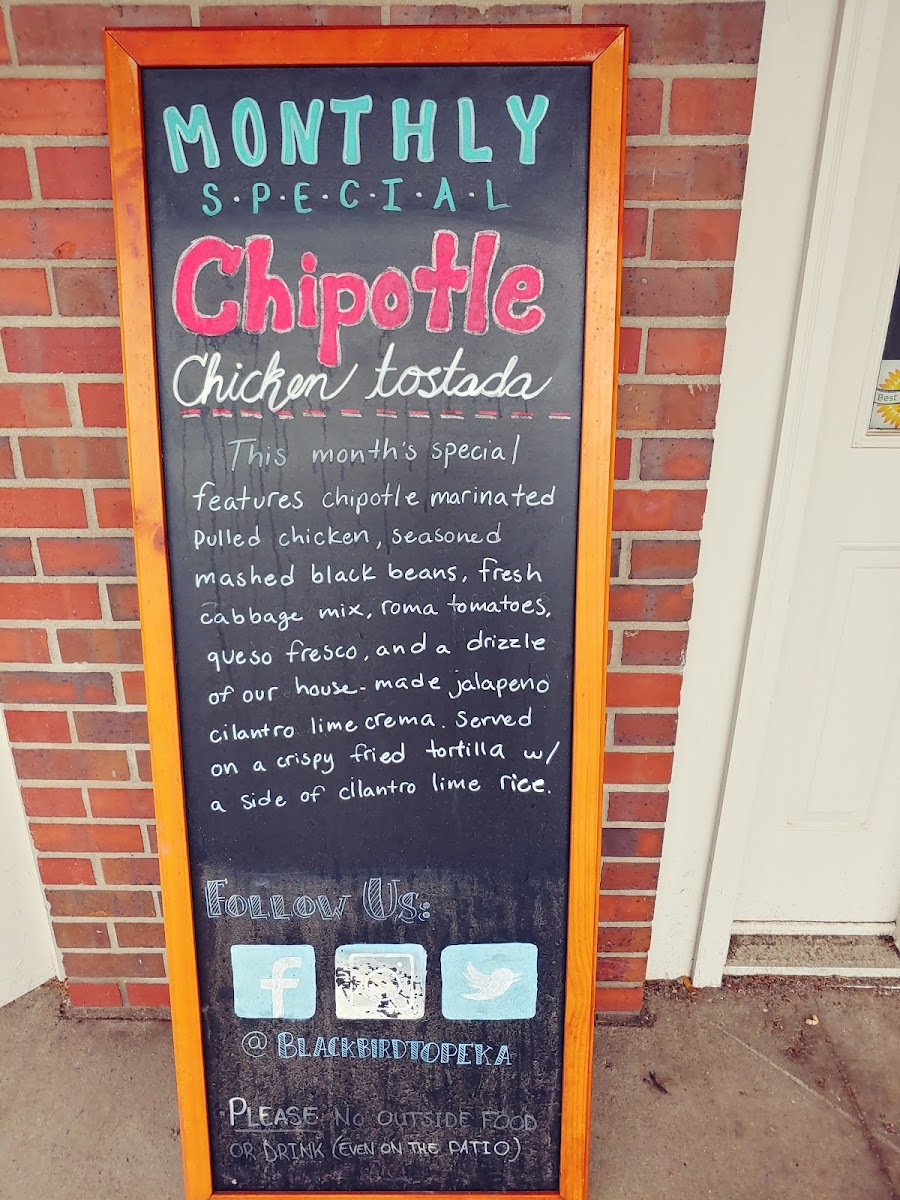 MONTHLY
S·P·E·C·I·A·L
Chipotle
Chicken tostada
This month's special
features chipotle marinated
pulled chicken, seasoned
mashed black beans, fresh
cabbage mix, roma tomatoes,
queso fresco, and a drizzle
of our house-made jalapeno
cilantro lime crema. Served
on a crispy fried tortilla w/
a side of cilantro lime rice.
FOLLOW US:
f
@BLACKBIRDTOPEKA
PLEASE NO OUTSIDE FOOD
OR DRINK (EVEN ON THE PATIO)
Best